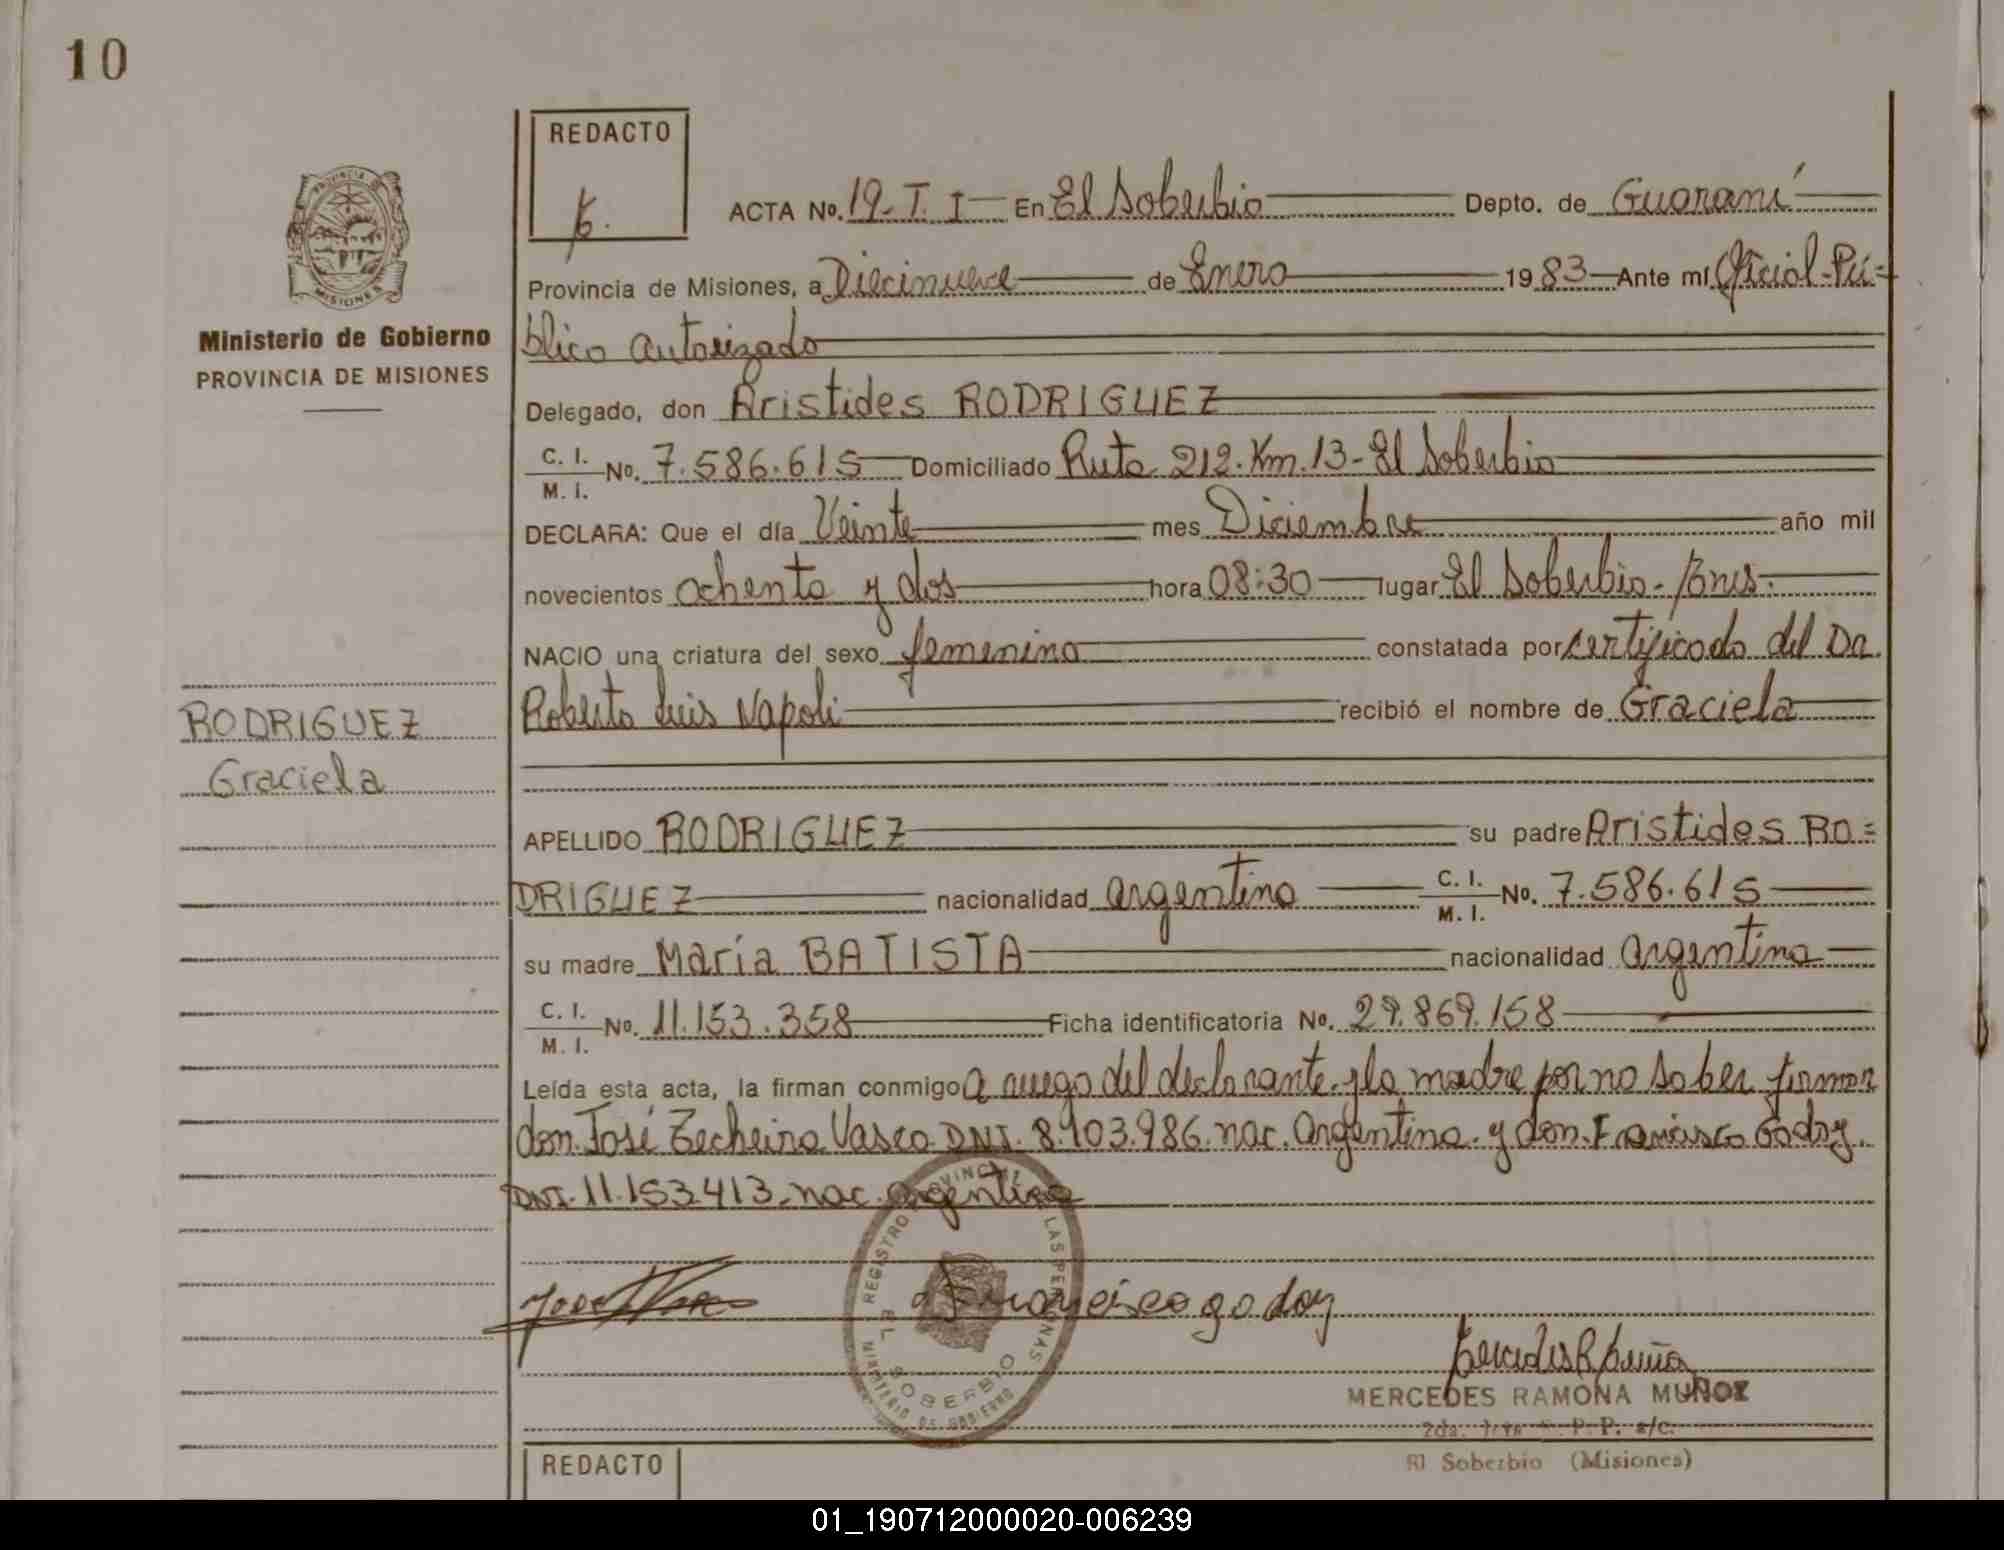 10
REDACTO
ACTA No. 19-T. I En El Soberbio Depto. de Guaraní
Provincia de Misiones, a Diecinueve de Enero 1983 Ante mí Oficial-Pú=
blico autorizado
PROVINCIA DE MISIONES
Ministerio de Gobierno
PROVINCIA DE MISIONES
Delegado, don Aristides RODRIGUEZ
C. I. / M. I. No. 7.586.615 Domiciliado Ruta 212. Km. 13 - El Soberbio
DECLARA: Que el día Veinte mes Diciembre año mil
novecientos ochenta y dos hora 08:30 lugar El Soberbio-
NACIO una criatura del sexo femenino constatada por certificado del Dr.
Roberto Luis Napoli recibió el nombre de Graciela
RODRIGUEZ
Graciela
APELLIDO RODRIGUEZ su padre Aristides RO=
DRIGUEZ nacionalidad argentina C. I. / M. I. No. 7.586.615
su madre María BATISTA nacionalidad argentina
C. I. / M. I. No. 11.153.358 Ficha identificatoria No. 29.869.158
Leída esta acta, la firman conmigo A ruego del declarante y la madre por no saber firmar
don José Vasco DNI. 8.103.986. nac. Argentina. y don. Francisco Godoy.
DNI. 11.153.413 - nac. argentina
REGISTRO PROVINCIAL LAS PERSONAS
EL SOBERBIO
MINISTERIO DE GOBIERNO
Francisco godoy
MERCEDES RAMONA MUÑOZ
2da. P. P. a/c.
El Soberbio (Misiones)
REDACTO
01_190712000020-006239